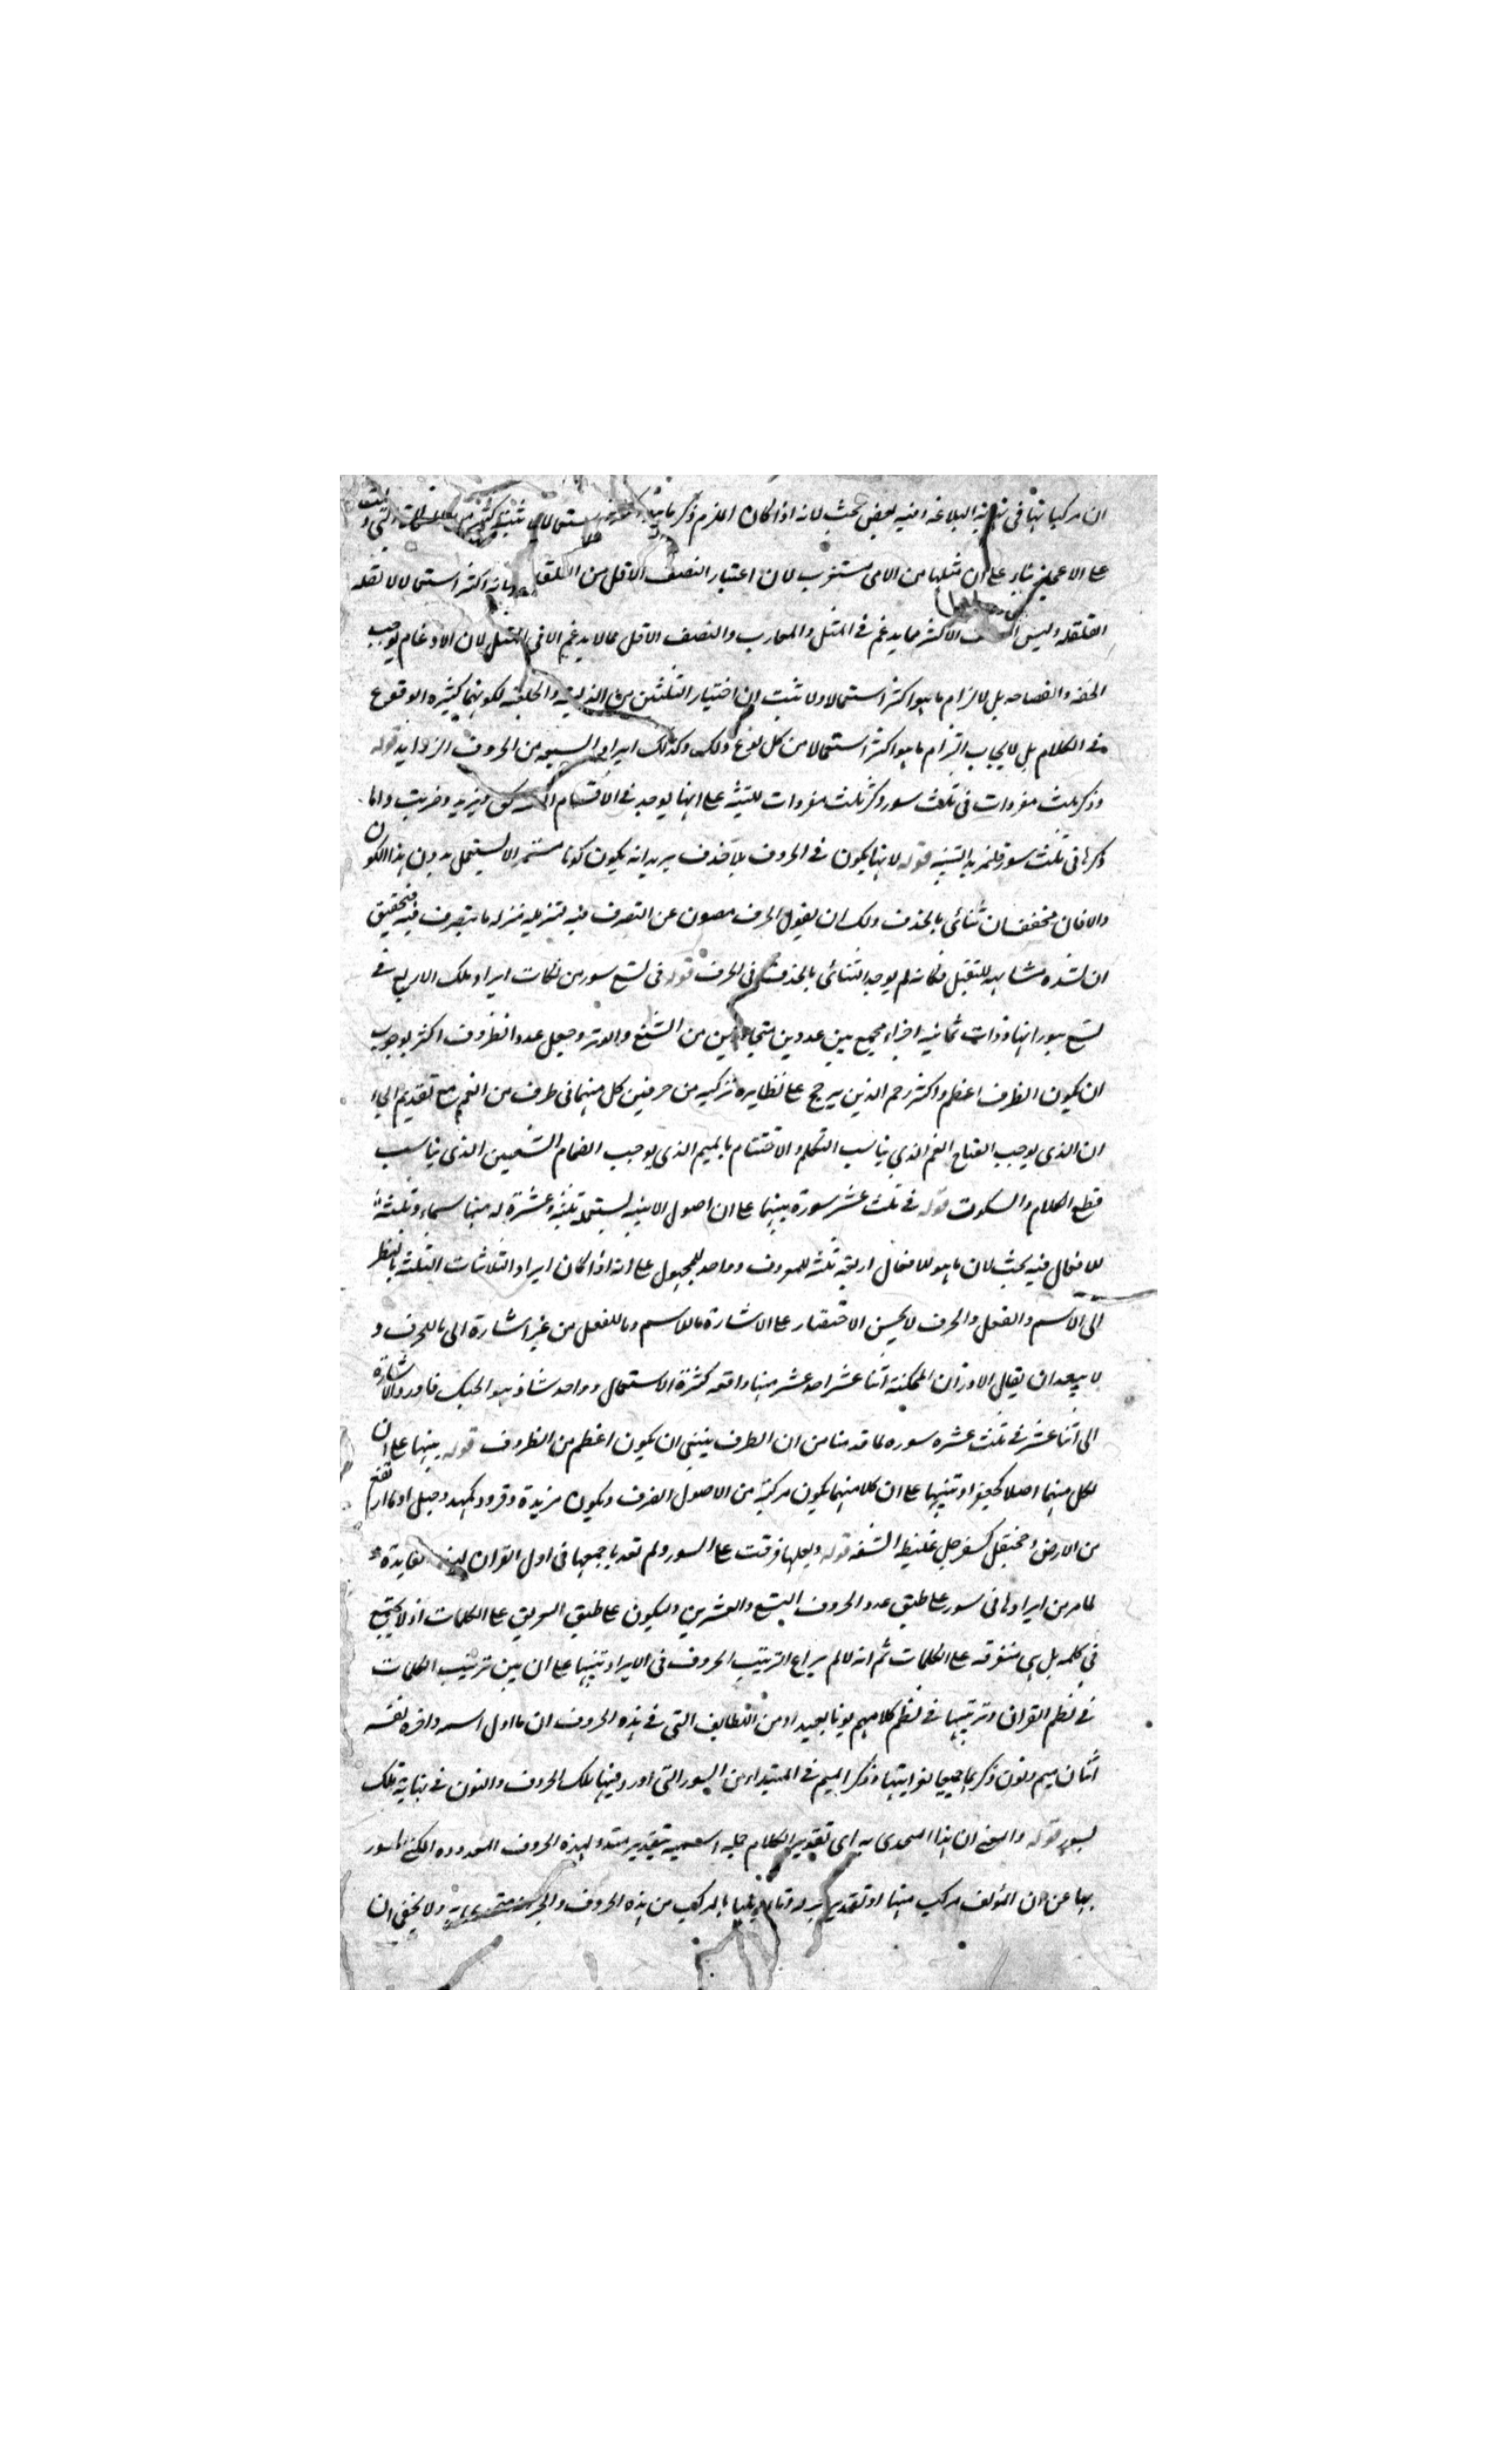 ان مركباتها في نهاية البلاغه افيه بعض بحث لانه اذا كان الملزم ذكر ما استعمالا لا يثبت كثرة
على الاعجاز بناء على ان مثلها من الامى مستغرب لان اعتبار النصف الاقل من القلقله بانه اكثر استعمالا لا لقله
القلقله وليس الاكثر مما يدغم فى المثل والمقارب والنصف الاقل مما لا يدغم الا فى المثل لان الادغام يوجب
الخفة والفصاحه بل لالزام ما هو اكثر استعمالا ولا ثبت ان اختيار الثلثين من الذلقيه والحلقيه لكونهما كثيرة الوقوع
فى الكلام بل لايجاب التزام ما هو اكثر استعمالا من كل نوع ذلك وكذلك ايراد السبعه من الحروف الزوايد قوله
وذكر ثلث مفردات فى ثلاث سور وكر ثلث مفردات للتنبيه على انها يوجد فى الاقسام الثلثه ك يزيد وضربت واما
ذكرها فى ثلث سور فلمزيد التنبيه قوله لانها يكون فى الحروف بلا حذف يريد انه يكون كونا مستمرا لا يستعمل بدون هذا الكون
والا فان مخففه ان ثنائى بالحذف ولك ان يقول الحرف مصون عن التصرف فيه لتنزيله منزله ما يتصرف فيه فتحقيق
ان لشده مشابهه للثقيل فكانه لم يوجد الثنائى بالحذف فى الحرف قوله فى تسع سور من نكات ايراد تلك الاربع فى
تسع سور انها ذوات ثمانيه اجزاء مجمع بين عددين متجانسين من الشفع والوتر وجعل عدد الظروف اكثر لوجوب
ان يكون الظرف اعظم واكثر وحم الذين يرجح على نظايره تركيبه من حرفين كل منهما فى طرف من الفم مع تقديم الحاء
ان الذى يوجب انفتاح الفم الذى يناسب التكلم والاختتام بالميم الذى يوجب انضمام الشفتين الذى يناسب
قطع الكلام والسكوت قوله فى ثلث عشر سورة تنبيها على ان اصول الابنيه المستعمله ثلثة عشرة له منها سماء وثلثة
للافعال فيه بحث لان ما هو للافعال اربعه ثلثه للمعروف وواحد للمجهول على انه اذا كان ايراد الثلاثيات الثلثه بالنظر
الى الاسم والفعل والحرف لا يحسن الاقتصار على الاشارة ماللاسم وماللفعل من غير اشارة الى ماللحرف و
لا يبعد ان يقال الاوزان الممكنة اثنا عشر احد عشر منها واقعه كثرة الاستعمال وواحد شاذ هو الحبك فاورد الاشارة
الى اثنا عشر فى ثلث عشره سوره لما قدمنا من ان الظرف ينبغى ان يكون اعظم من المظروف قوله تنبيها على ان
لكل منهما اصلا كجعفر او تنبيها على ان كلا منهما يكون مركبة من الاصول الصرف ويكون مزيدة وقردد كمهدد جبل او ما ارتفع
من الارض وجحنفل كسفرجل غليظ الشفه قوله ولعلها فرقت على السور ولم تعد باجمعها فى اول القران لهذه الفايدة
لما مر من ايرادها فى سور على طبق عدد الحروف التسع والعشرين وليكون على طبق التفريق على الكلمات اذ لا يجتمع
فى كلمه بل هى متفرقه على الكلمات ثم انه لما لم يراع الترتيب الحروف فى الايراد تنبيها على ان بين ترتيب الكلمات
فى نظم القران وترتيبها فى نظم كلامهم بونا بعيدا ومن اللطايف التى فى هذه الحروف ان ما اول اسمه واخره نفسه
اثنان ميم ونون ذكر بهما جميعا لغرابتها وذكر الميم فى المبتداء من السور التى اورد فيها تلك الحروف والنون فى نهاية تلك
السور قوله والمعنى ان هذا المتحدى به اى تقدير الكلام جمله اسميه بتقدير مبتدا لهذه الحروف المعدوده المكنى
بها عن ان المؤلف مركب منها او تقدير لها بالمركب من هذه الحروف والخبر متحدى به ولا يخفى ان